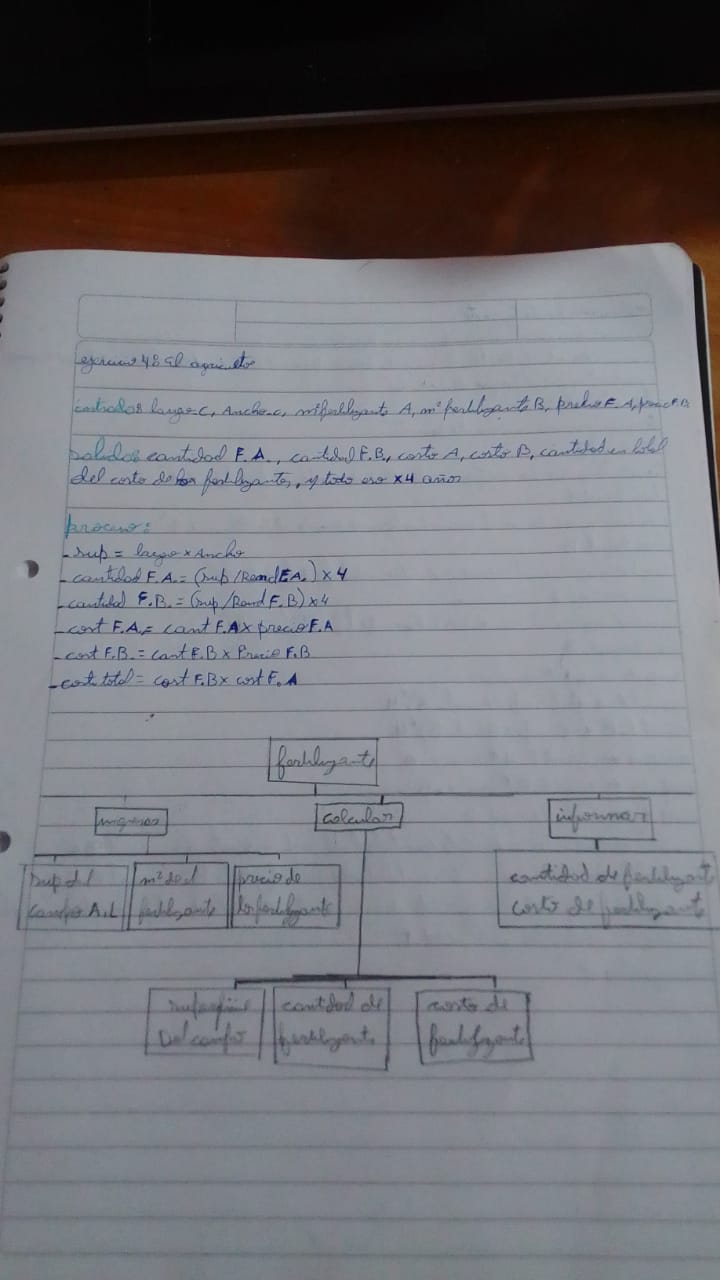 ejercicio 48 El agricultor
entradas largo-C, Ancho-c, m² fertilizante A, m² fertilizante B, precio F.A, precio F.B
salidas cantidad F.A., cantidad F.B., costo A, costo B, cantidad en total
del costo de los fertilizantes, y todo eso x4 años
proceso:
-sup = largo x Ancho
-cantidad F.A.= (sup/Rend F.A.) x 4
-cantidad F.B.= (sup/Rend F.B) x4
-cost F.A.= cant F.A x precio F.A
-cost F.B.= cant F.B x Precio F.B
-costo total = cost F.B x cost F.A
fertilizante
ingreso
calcular
informar
sup del
campo A.L
m² del
fertilizante
precio de
los fertilizante
cantidad de fertilizante
costo de fertilizante
superficie
Del campo
cantidad de
fertilizante
costo de
fertilizante